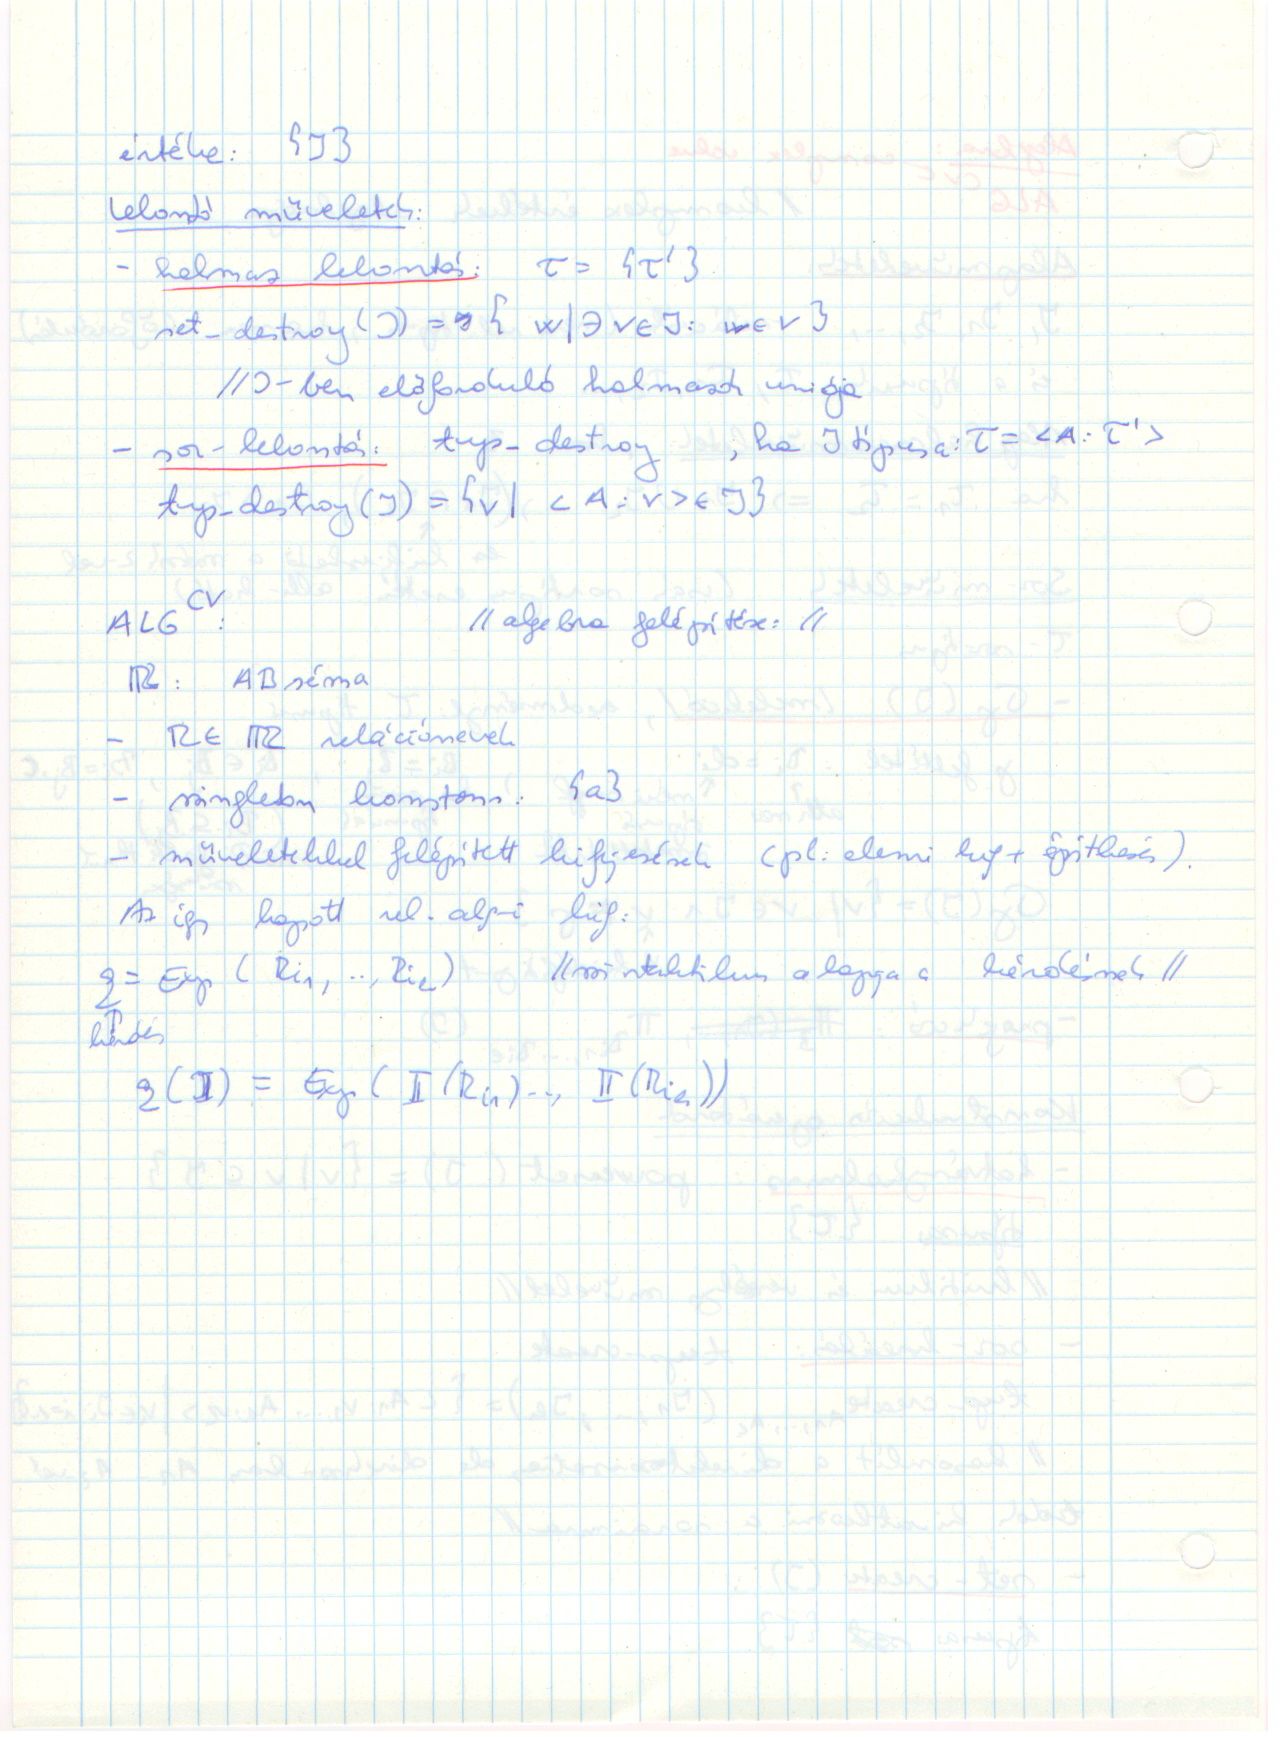 értéke: {J}
lebontó műveletek:
- halmaz lebontás: τ = {τ'}
set_destroy(J) = { w | ∃ v ∈ J: w ∈ v }
// J-ben előforduló halmazok uniója
- sor-lebontás: tup_destroy , ha J típusa: τ = <A: τ'>
tup_destroy(J) = {v | <A: v> ∈ J}
ALG^CV: // algebra felépítése: //
ℝ: AB séma
- R ∈ ℝ relációnevek
- singleton konstans: {a}
- műveletekkel felépített kifejezések (pl: elemi kif + építkezés).
Az így kapott rel. alg-i kif:
q = Exp ( Ri₁, .., Riₖ) // szintaktikus alapja a kérdésnek //
↑
kérdés
q(𝕀) = Exp( 𝕀(Ri₁) .., 𝕀(Riₖ))